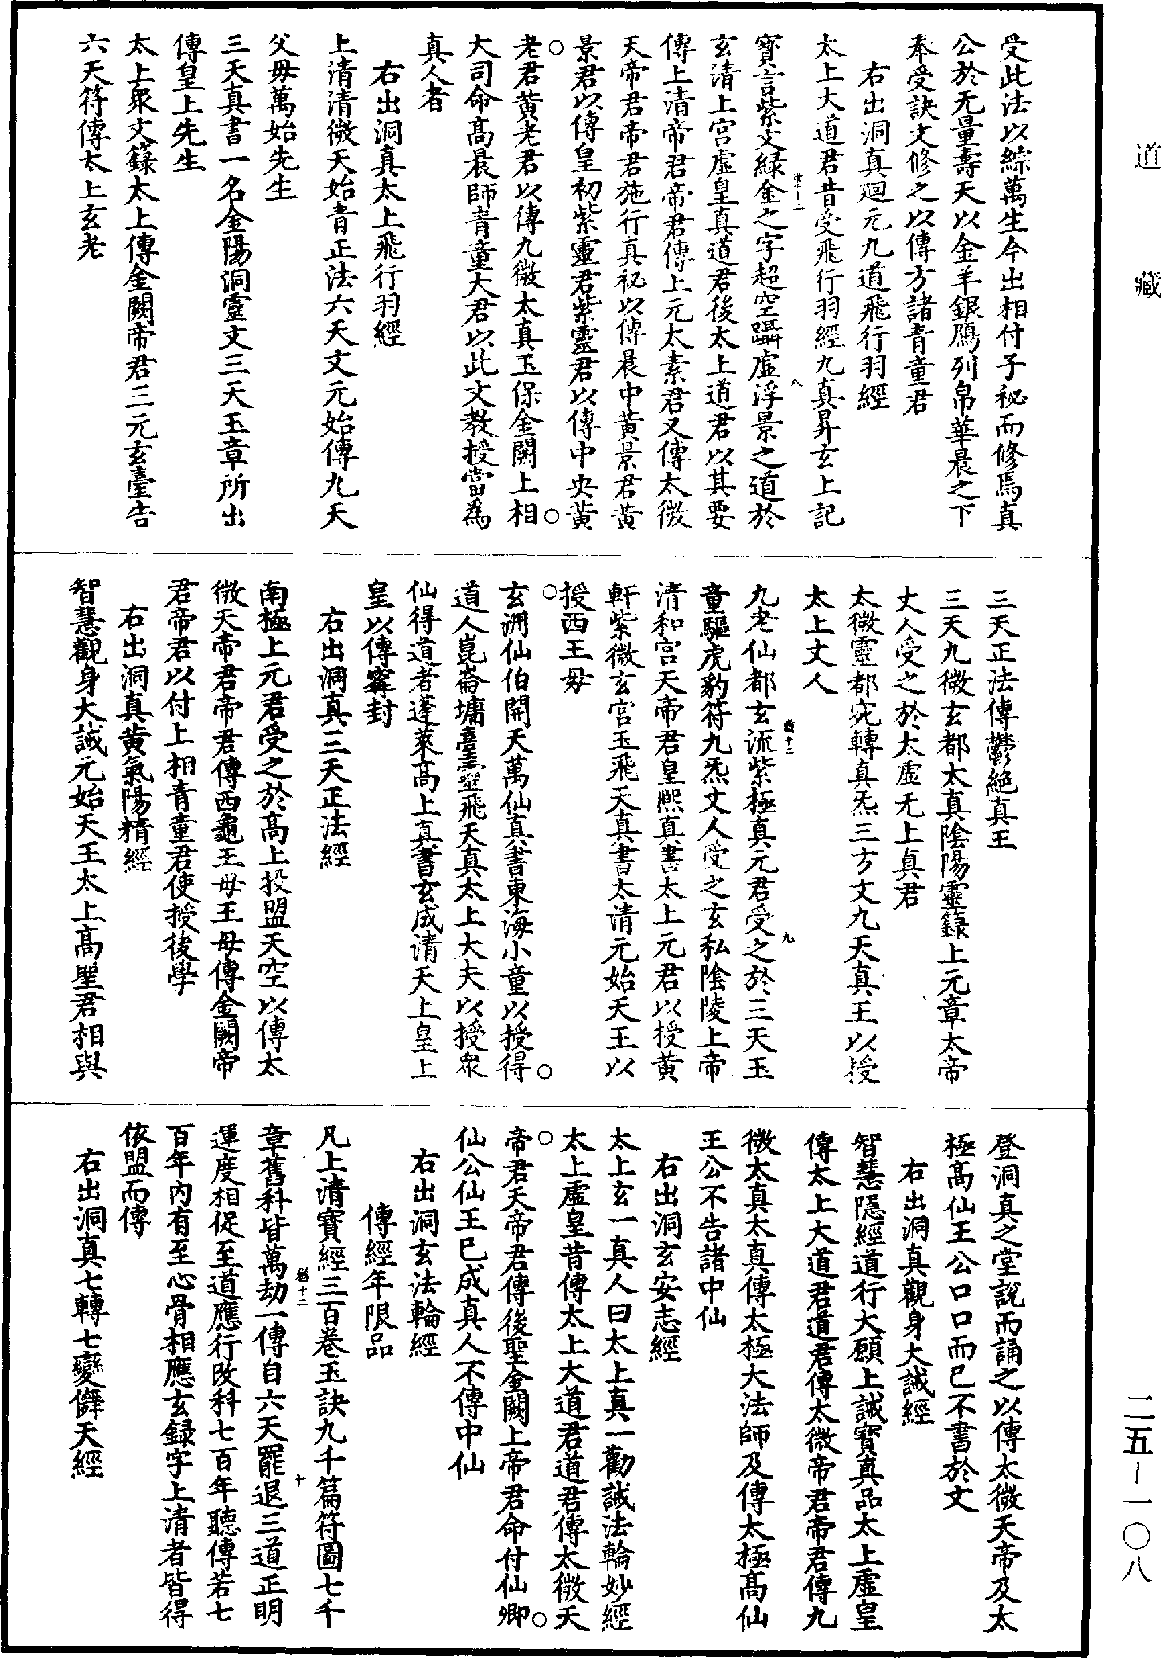 道藏
受此法以綜萬生今出相付子祕而修焉真
公於无量壽天以金羊銀鴈列帛華晨之下
奉受訣文修之以傳方諸青童君
右出洞真廻元九道飛行羽經
太上大道君昔受飛行羽經九真昇玄上記
寶言紫文緑金之字超空躡虛浮景之道於
玄清上宮虛皇真道君後太上道君以其要
傳上清帝君帝君傳上元太素君又傳太微
天帝君帝君施行真祕以傳晨中黄景君黄
景君以傳皇初紫靈君紫靈君以傳中央黄
老君黄老君以傳九微太真玉保金闕上相
大司命高晨師青童大君以此文教授當為
真人者
右出洞真太上飛行羽經
上清清微天始青正法六天文元始傳九天
父母萬始先生
三天真書一名金陽洞靈文三天玉章所出
傳皇上先生
太上衆文籙太上傳金闕帝君三元玄臺告
六天符傳太上玄老
三天正法傳鬱絶真王
三天九微玄都太真陰陽靈籙上元章太帝
丈人受之於太虛无上真君
太微靈都宛轉真炁三方文九天真王以授
太上丈人
九老仙都玄流紫極真元君受之於三天玉
童驅虎豹符九炁丈人受之玄私陰陵上帝
清和宮天帝君皇熙真書太上元君以授黄
軒紫微玄宮玉飛天真書太清元始天王以
授西王母
玄洲仙伯開天萬仙真書東海小童以授得
道人崑崙墉臺靈飛天真太上大夫以授衆
仙得道者蓬萊高上真書玄成清天上皇上
皇以傳寗封
右出洞真三天正法經
南極上元君受之於高上投盟天空以傳太
微天帝君帝君傳西龜王母王母傳金闕帝
君帝君以付上相青童君使授後學
右出洞真黄氣陽精經
智慧觀身大誡元始天王太上高聖君相與
登洞真之堂説而誦之以傳太微天帝及太
極高仙王公口口而已不書於文
右出洞真觀身大誡經
智慧隱經道行大願上誡寶真品太上虛皇
傳太上大道君道君傳太微帝君帝君傳九
微太真太真傳太極大法師及傳太極高仙
王公不告諸中仙
右出洞玄安志經
太上玄一真人曰太上真一勸誡法輪妙經
太上虛皇昔傳太上大道君道君傳太微天
帝君天帝君傳後聖金闕上帝君命付仙卿
仙公仙王已成真人不傳中仙
右出洞玄法輪經
傳經年限品
凡上清寶經三百卷玉訣九千篇符圖七千
章舊科皆萬劫一傳自六天罷退三道正明
運度相促至道應行改科七百年聽傳若七
百年內有至心骨相應玄録字上清者皆得
依盟而傳
右出洞真七轉七變儛天經
二五－一〇八